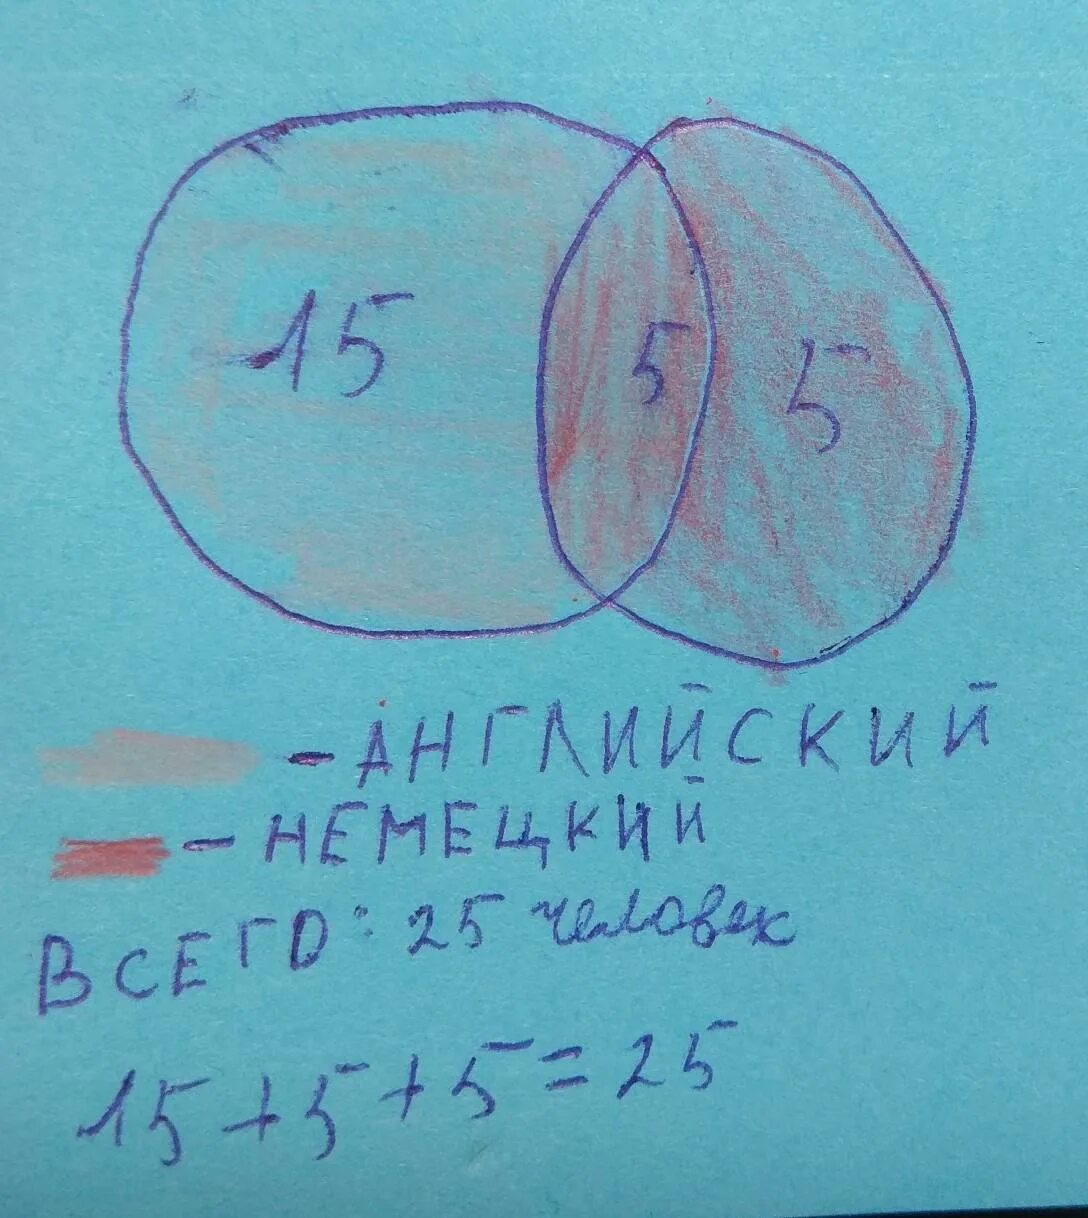 15 5 5
- АНГЛИЙСКИЙ
- НЕМЕЦКИЙ
ВСЕГО: 25 человек
15 + 5 + 5 = 25